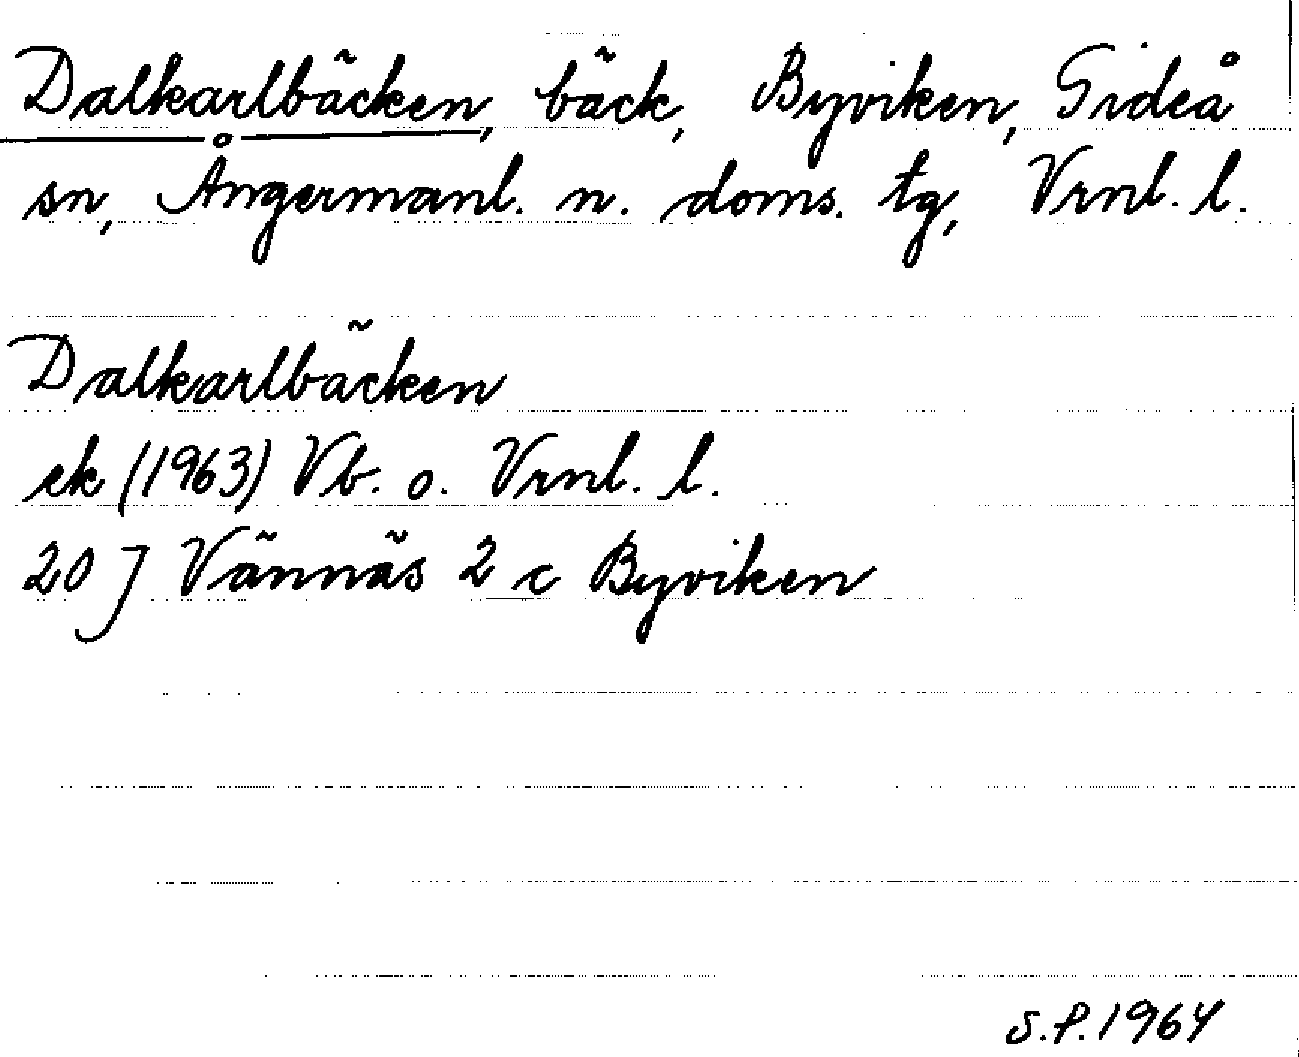 Dalkarlbäcken, bäck, Byviken, Gideå
sn, Ångermanl. n. doms. tg, Vrnl. l.
Dalkarlbäcken
ek (1963) Vb. o. Vrnl. l.
20 J Vännäs 2 c Byviken
S.P. 1964